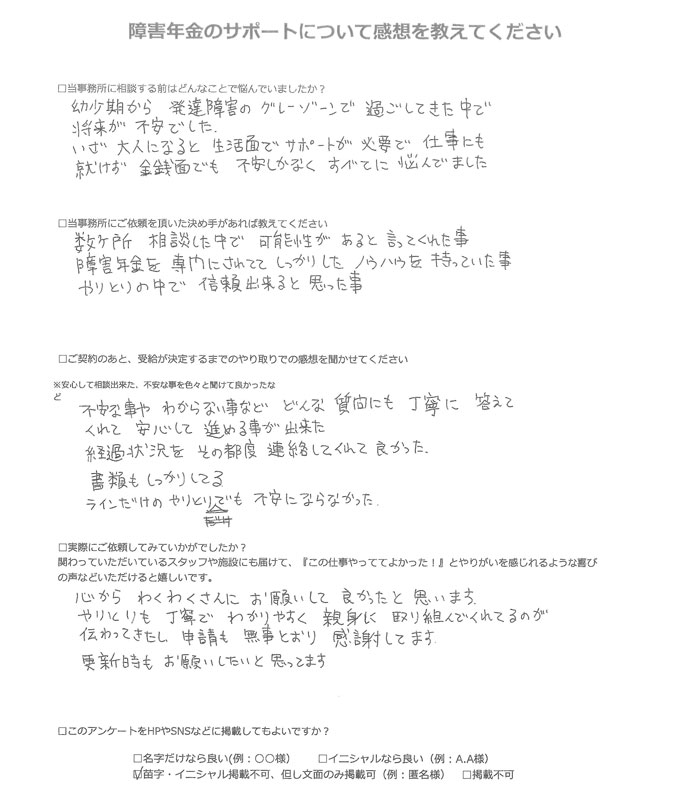 障害年金のサポートについて感想を教えてください
□当事務所に相談する前はどんなことで悩んでいましたか？
幼少期から 発達障害の グレーゾーンで 過ごしてきた中で
将来が 不安でした.
いざ 大人になると 生活面でサポートが 必要で 仕事にも
就けず 金銭面でも 不安しかなく すべてに 悩んでました
□当事務所にご依頼を頂いた決め手があれば教えてください
数ヶ所 相談した中で 可能性が あると 言ってくれた事
障害年金を 専門にされてて しっかりした ノウハウを 持っていた事
やりとりの中で 信頼出来ると 思った事
□ご契約のあと、受給が決定するまでのやり取りでの感想を聞かせてください
※安心して相談出来た、不安な事を色々と聞けて良かったな
ど
不安な事や わからない事など どんな 質問にも 丁寧に 答えて
くれて 安心して 進める事が 出来た
経過状況を その都度 連絡してくれて 良かった.
書類も しっかりしてる
ラインだけの やりとりでも 不安にならなかった.
□実際にご依頼してみていかがでしたか？
関わっていただいているスタッフや施設にも届けて、『この仕事やっててよかった！』とやりがいを感じれるような喜び
の声などいただけると嬉しいです。
心から わくわくさんに お願いして 良かったと 思います.
やりとりも 丁寧で わかりやすく 親身に 取り組んでくれてるのが
伝わってきたし 申請も 無事とおり 感謝してます.
更新時も お願いしたいと 思ってます
□このアンケートをHPやSNSなどに掲載してもよいですか？
□名字だけなら良い(例：〇〇様） □イニシャルなら良い（例：A.A様）
☑苗字・イニシャル掲載不可、但し文面のみ掲載可（例：匿名様） □掲載不可